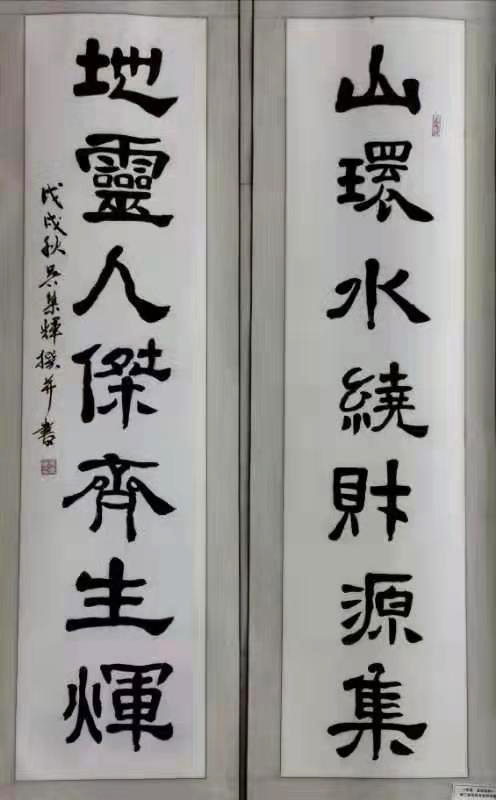 山環水繞財源集
地靈人傑齊生輝
戊戌秋吳集輝撰并書